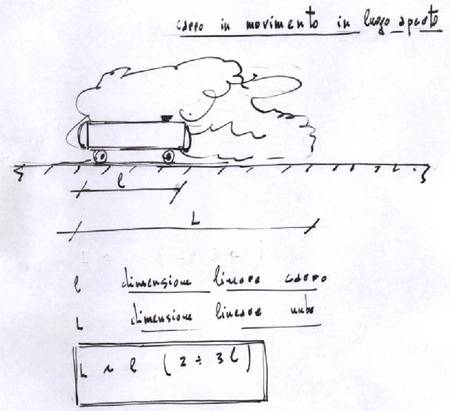 carro in movimento in luogo aperto
l
L
l dimensione lineare carro
L dimensione lineare nube
L ~ l (2 ÷ 3 l)